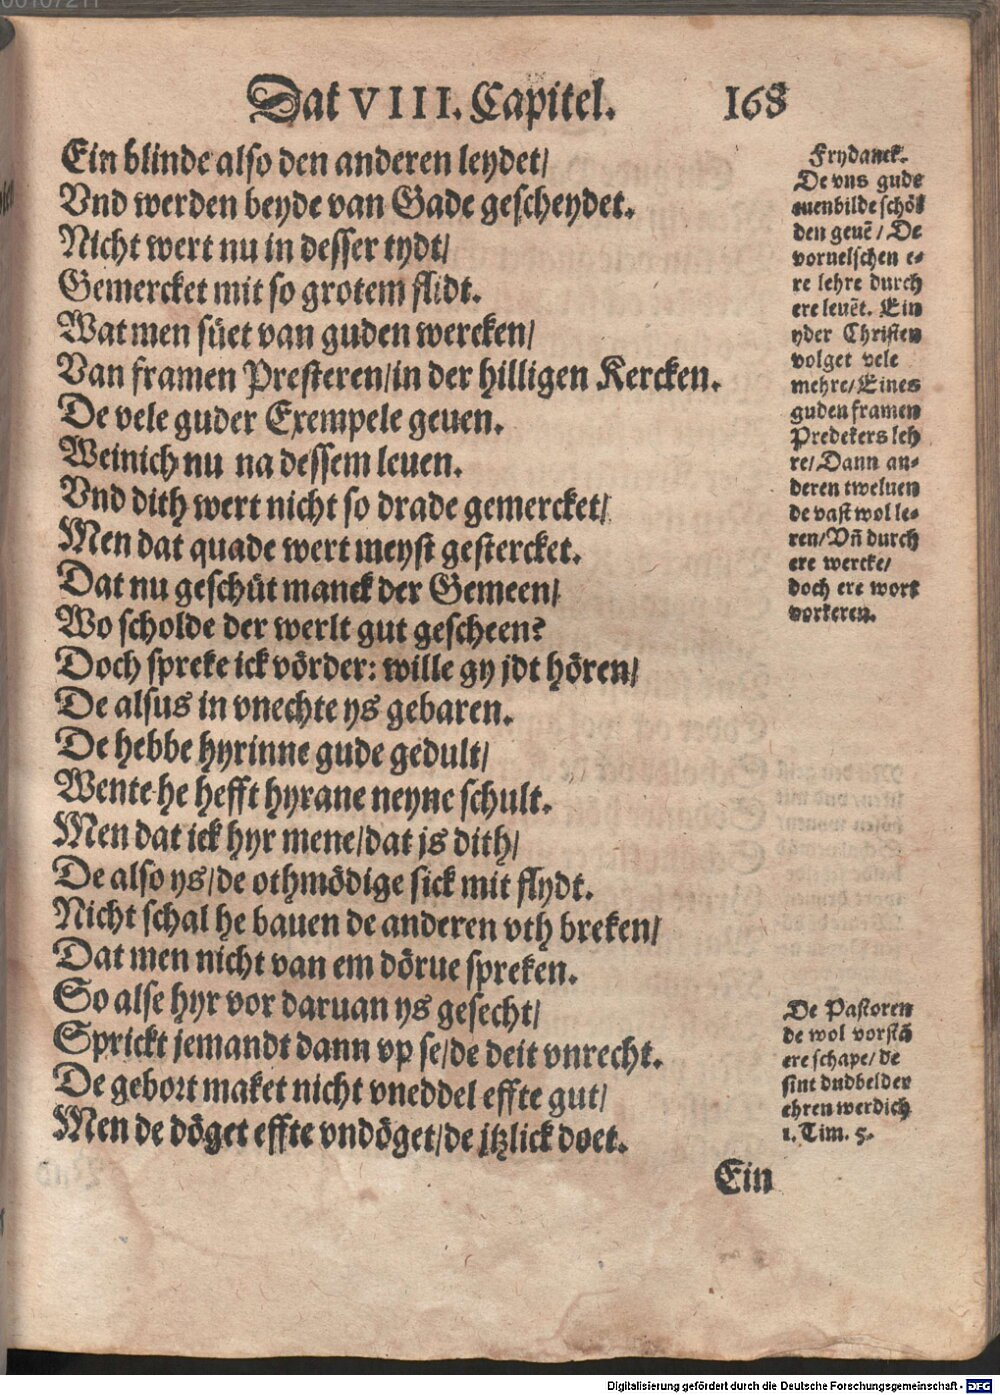 Dat VIII. Capitel. 168
Ein blinde also den anderen leydet/
Vnd werden beyde van Gade gescheydet.
Nicht wert nu in desser tydt/
Gemercket mit so grotem flidt.
Wat men süet van guden wercken/
Van framen Presteren/in der hilligen Kercken.
De vele guder Exempele geuen.
Weinich nu na dessem leuen.
Vnd dith wert nicht so drade gemercket/
Men dat quade wert meyst gestercket.
Dat nu geschüt manck der Gemeen/
Wo scholde der werlt gut gescheen?
Doch spreke ick vörder: wille gy jdt hören/
De alsus in vnechte ys gebaren.
De hebbe hyrinne gude gedult/
Wente he hefft hyrane neyne schult.
Men dat ick hyr mene/dat js dith/
De also ys/de othmödige sick mit flydt.
Nicht schal he bauen de anderen vth breken/
Dat men nicht van em dörue spreken.
So alse hyr vor daruan ys gesecht/
Sprickt jemandt dann vp se/de deit vnrecht.
De gebort maket nicht vneddel effte gut/
Men de döget effte vndöget/de jtzlick doet.
Frydanck.
De vns gude
euenbilde schöl
den geuē / De
voruelschen e-
re lehre durch
ere leuēt. Ein
yder Christen
volget vele
mehre/Eines
guden framen
Predekers leh
re/Dann an-
deren tweluen
de vast wol le-
ren/Vñ durch
ere wercke/
doch ere wort
vorkeren.
De Pastoren
de wol vorstā
ere schape/de
sint dubbelder
ehren werdich
1. Tim. 5.
Ein
00107211
Digitalisierung gefördert durch die Deutsche Forschungsgemeinschaft - DFG